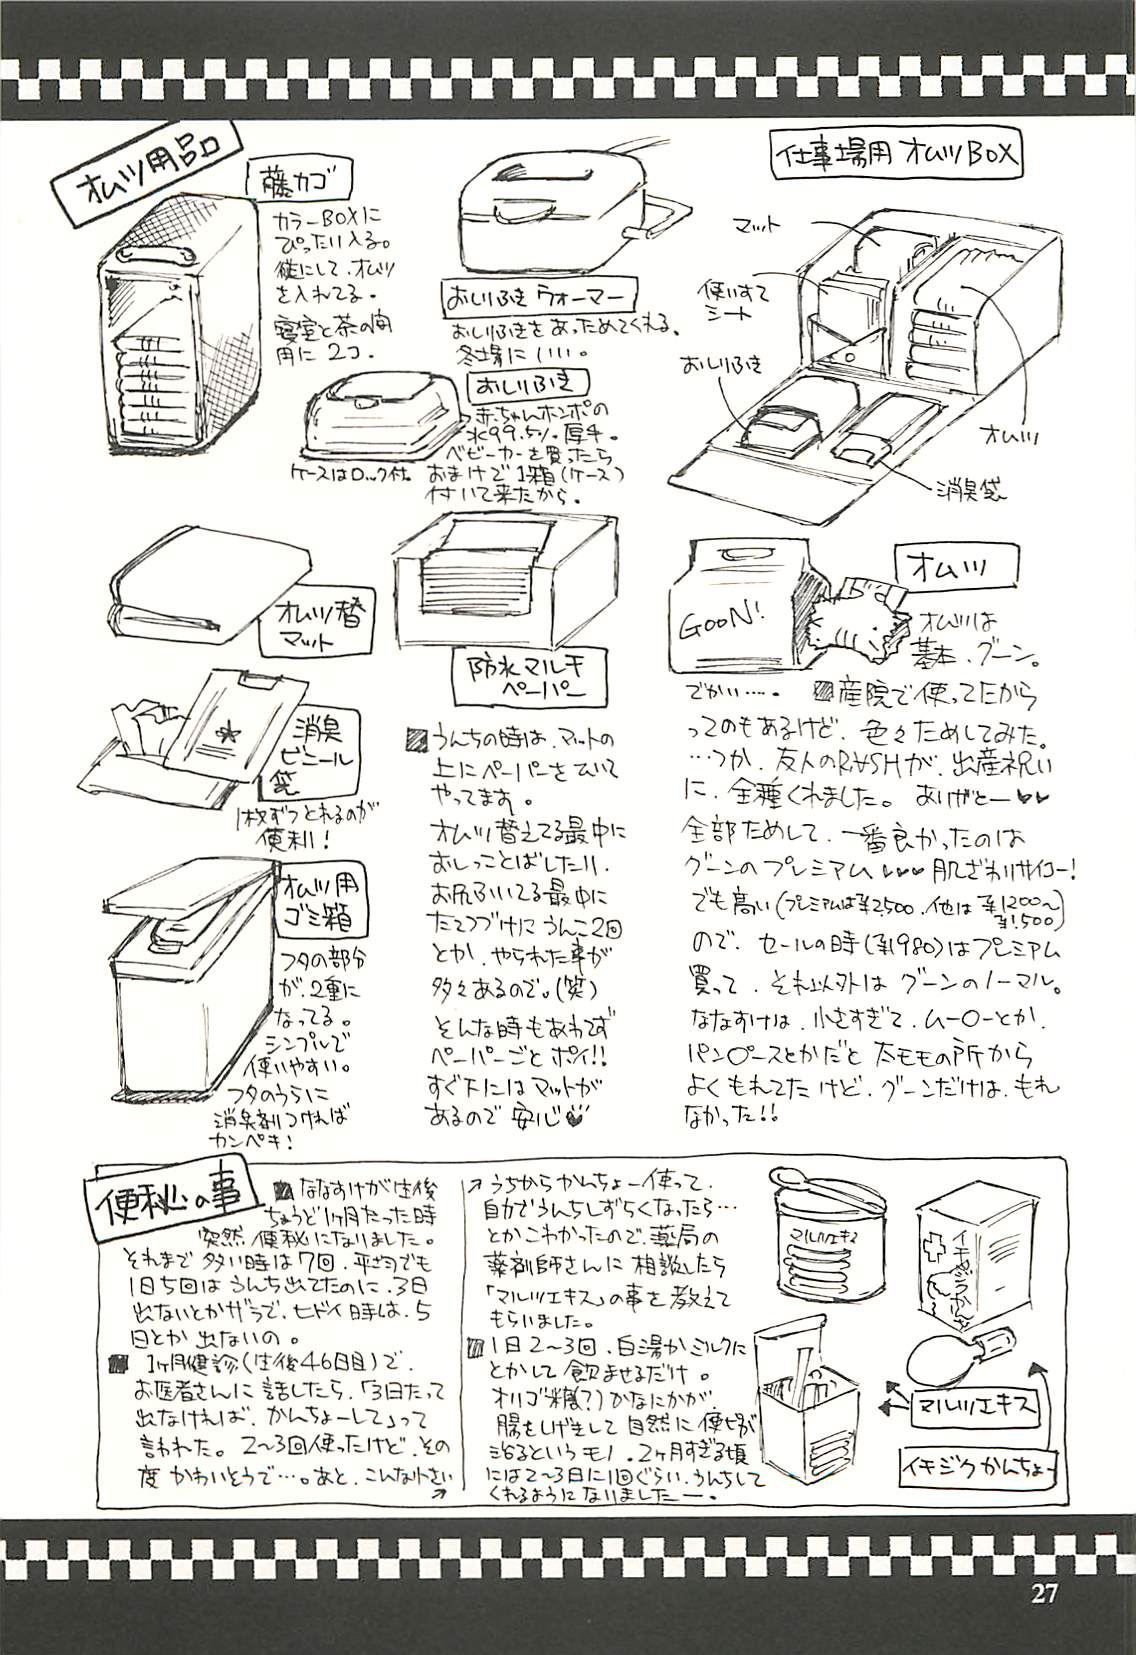 オムツ用品
藤カゴ
カラーBOXに
ぴったり入る。
縦にして、オムツ
を入れてる。
寝室と茶の間
用に2コ.
おしりふきウォーマー
おしりふきをあっためてくれる.
冬場にいい。
おしりふき
赤ちゃんホンポの
水99.5%.厚手。
ベビーカーを買ったら
おまけで1箱(ケース)
付いて来たから.
ケースはロック付.
仕事場用 オムツBOX
マット
使いすて
シート
おしりふき
オムツ
消臭袋
オムツ替
マット
防水マルチ
ペーパー
■うんちの時は、マットの
上にペーパーをひいて
やってます。
オムツ替えてる最中に
おしっことばしたり、
お尻ふいてる最中に
たてつづけにうんこ2回
とか、やられた事が
多々あるので。(笑)
そんな時もあわてず
ペーパーごとポイ!!
すぐ下にはマットが
あるので 安心♥
消臭
ビニール
袋
1枚ずつとれるのが
便利!
オムツ用
ゴミ箱
フタの部分
が、2重に
なってる。
シンプルで
使いやすい。
フタのうらに
消臭剤つければ
カンペキ!
オムツ
GOON!
オムツは
基本、グーン。
でかい….
■産院で使ってたから
ってのもあるけど、色々ためしてみた。
…つか、友人のRASHが、出産祝い
に、全種くれました。 ありがとー♥♥
全部ためして、一番良かったのは
グーンのプレミアム♥♥♥肌ざわりサイコー!
でも高い(プレミアムは¥2,500、他は¥1200〜
¥1,500)
ので、セールの時(¥1980)はプレミアム
買って、それ以外はグーンのノーマル。
ななすけは、小さすぎて、ムー○ーとか、
パン○ースとかだと 太モモの所から
よくもれてたけど、グーンだけは、もれ
なかった!!
便秘の事
■ななすけが生後
ちょうど1ヶ月たった時
突然、便秘になりました。
それまで多い時は7回、平均でも
1日5回はうんち出てたのに、3日
出ないとかザラで、ヒドイ時は、5
日とか出ないの。
■1ヶ月健診(生後46日目)で、
お医者さんに話したら、「3日たって
出なければ、かんちょーして」って
言われた。2〜3回使ったけど、その
度かわいそうで…。あと、こんな小さい
うちからかんちょー使って、
自力でうんちしずらくなったら…
とかこわかったので、薬局の
薬剤師さんに相談したら
「マルツエキス」の事を教えて
もらいました。
■1日2〜3回、白湯かミルクに
とかして飲ませるだけ。
オリゴ糖(?)かなにかが、
腸をしげきして自然に便秘が
治るというモノ。2ヶ月すぎる頃
には2〜3日に1回ぐらい、うんちして
くれるようになりましたー。
マルツエキス
イチジクかんちょう
マルツエキス
イチジクかんちょー
27